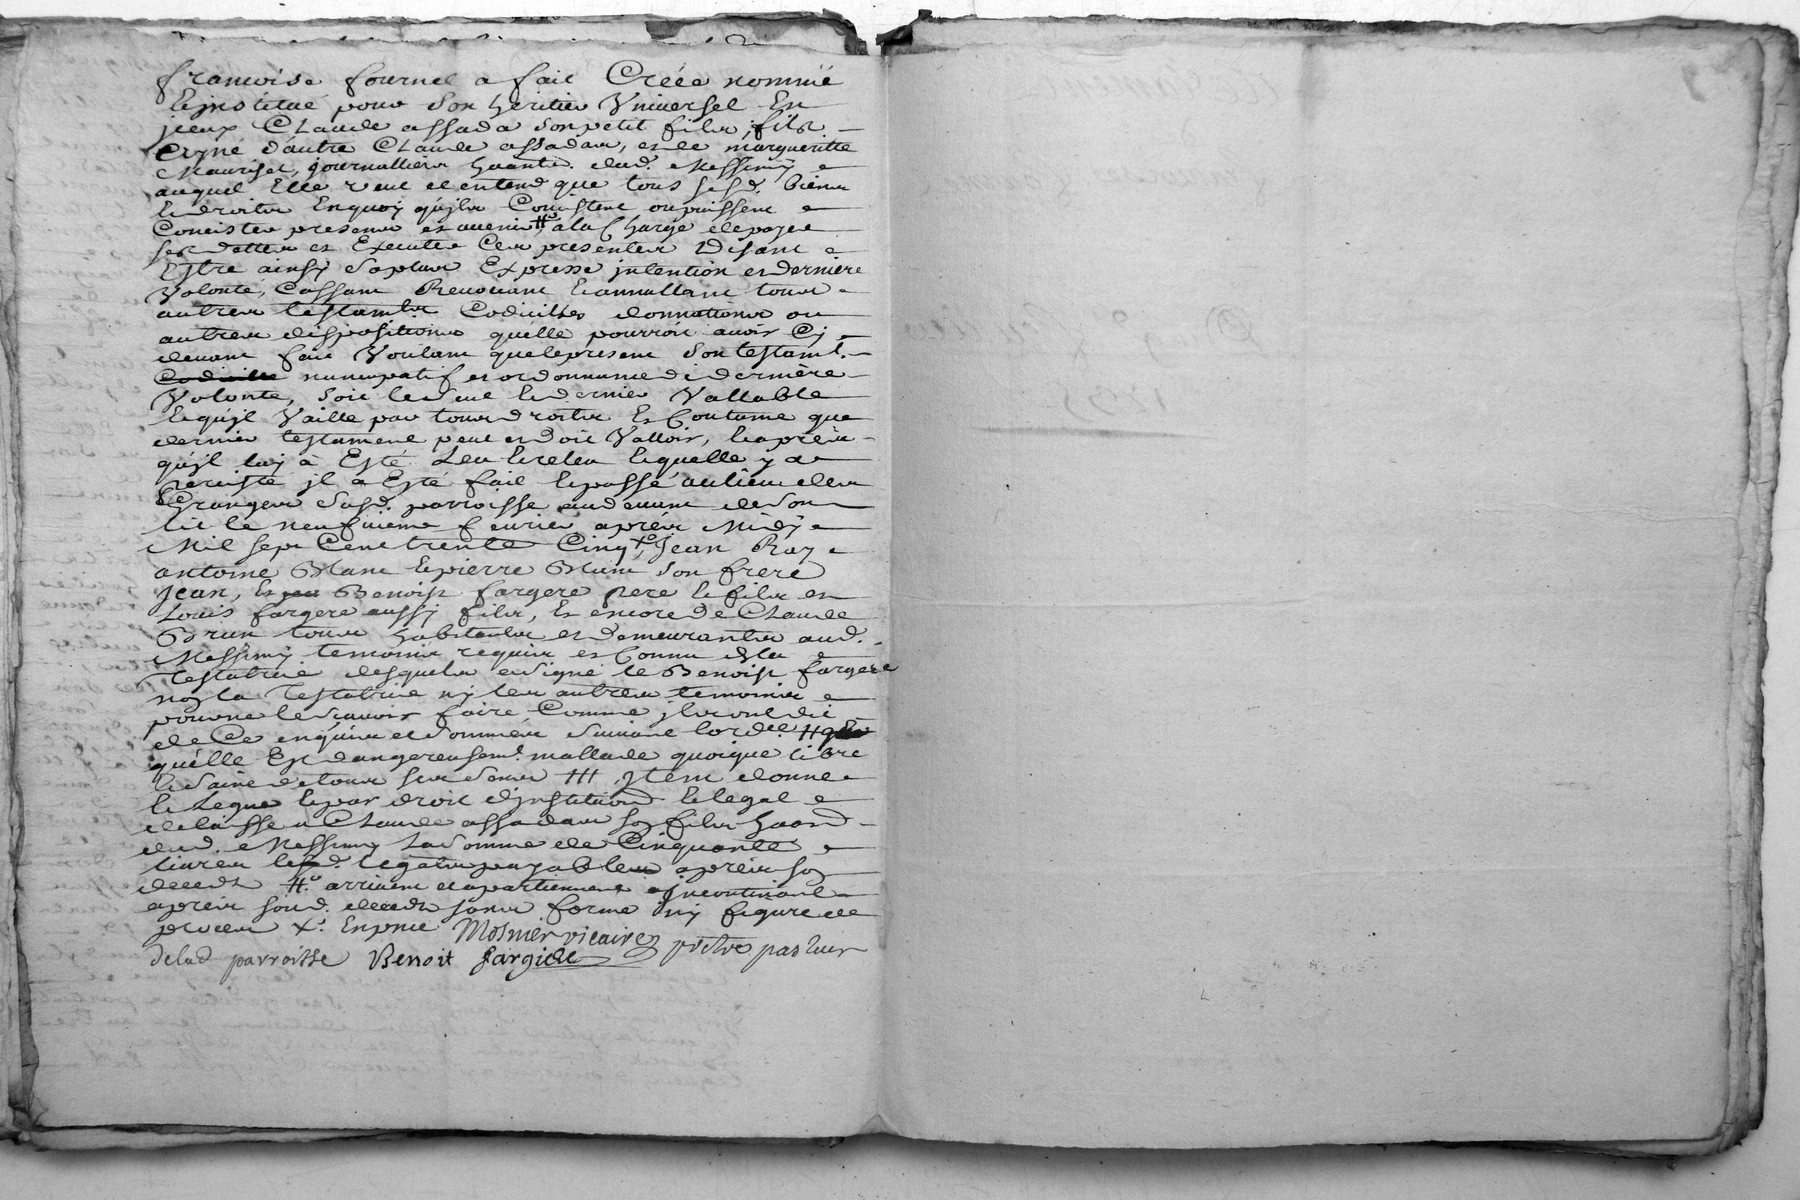 francoise fournel a fait Créée nommée
& institué pour son heritier Vniuersel En
jceux Claude assada son petit filz, filz
Eyné d'autre Claude assadas, et de margueritte
Maurisat, journallier haants. dud. Messimÿ
auquel Elle veut et entend que tous sesd. biens
& droits Enquoÿ qu'jls Consistent ou puissent
Concister presens et auenir # a la Charge de payer
ses dettes et Executer Ces presentes Disant
Estre ainsÿ sa plus Expresse jntention et derniere
Volonte, Cassant Reuocant & annullant tous
autres testamts Codicilles donnations ou
autres dispositions qu'elle pourroit auoir Cÿ
deuant fait Voulant que le present son testamt.
nuncupatif et ordonnance de derniere
Volonte, soit le seul & dernier Vallable
& qu'jl Vaille par tous droits & Coutume que
dernier testament peut et doit Valloir, & apres
qu'jl luÿ à Esté Leu & releu & quelle y a
percisté jl a Esté fait & passé au lieu des
Granges susd. parroisse au deuant de son
lit le neufuieme feurier apres Midÿ
Mil sept Cent trente Cinq x Jean Ray
antoine Blanc & pierre Blanc son frere
Jean, & Benoist fargere pere & fils et
Louis fargere aussÿ fils, & encore de Claude
Brun tous habitants et demeurants aud.
Messimÿ temoins requis et Connu de la
Testatrice desquels a signé le Benoist fargere
non la Testatrice nÿ les autres temoins
pouuoir le scauoir faire Comme jls ont dit
de Ce enquis et sommés Suiuant lordce #
qu'elle Est dangereusemt. mallade quoique libre
& saine de tous ses sens ### jtem donne
& Legue & par droit d'jnstitution & legat
delaisse a Claude assadas son fils haant
dud. Messimy La somme de Cinquante
liures lesd. legats payables apres son
decedz # arriuent et apartiennent jncontinant
apres sond. decedz sans forme nÿ figure de
proces x. Enpnce Mosnier vicaire prétre pasteur
delad parroisse Benoit fargiere